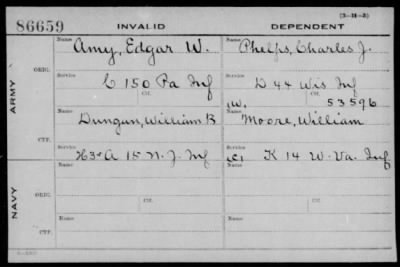 86659 INVALID DEPENDENT (3-11-3)
ARMY
ORIG.
Name Amy, Edgar W. Name Phelps, Charles J.
Service C 150 Pa Inf Service D 44 Wis Inf
Ctf. Ctf. W. 53596
CTF.
Name Dungan, William B Name Moore, William
Service A 15 N. J. Inf Service K 14 W. Va. Inf
NAVY
ORIG.
Name Ctf. Name Ctf.
CTF.
Name Name